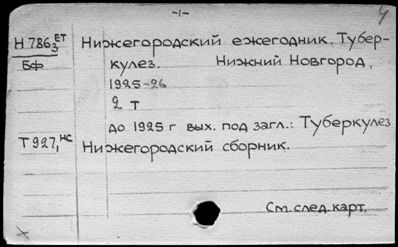 -1- 4
Н.786³ ЕТ Нижегородский ежегодник. Тубер-
Бф кулез. Нижний Новгород,
1925-26
2 т
до 1925 г вых. под загл.: Туберкулез
Т927, НС Нижегородский сборник.
См. след. карт.